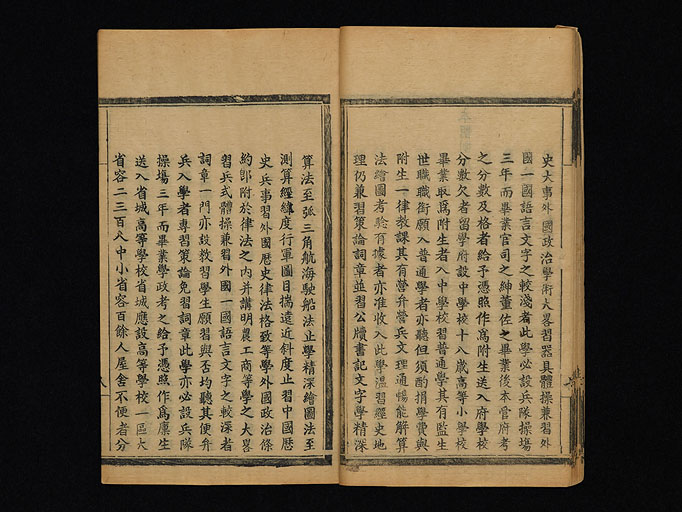 史大事外國政治學術大畧習器具體操兼習外
國一國語言文字之較淺者此學必設兵隊操場
三年而畢業官司之紳董佐之畢業後本官府考
之分數及格者給予憑照作爲附生送入府學校
分數欠者留學府設中學校十八歲高等小學校
畢業取爲附生者入中學校習普通學其有監生
世職職銜願入普通學者亦聽但須酌捐學費與
附生一律教課其有營弁營兵文理通暢能解算
法繪圖考驗有據者亦准收入此學溫習經史地
理仍兼習策論詞章並習公牘書記文字學精深
算法至弧三角航海駛船法止學精深繪圖法至
測算經緯度行軍圖目揣遠近斜度止習中國歷
史兵事習外國歷史律法格致等學外國政治條
約卽附於律法之内并講明農工商等學之大畧
習兵式體操兼習外國一國語言文字之較深者
詞章一門亦設教習學生願習與否均聽其便弁
兵入學者專習策論免習詞章此學亦必設兵隊
操場三年而畢業學政考之給予憑照作爲廩生
送入省城高等學校省城應設高等學校一區大
省容二三百人中小省容百餘人屋舍不便者分